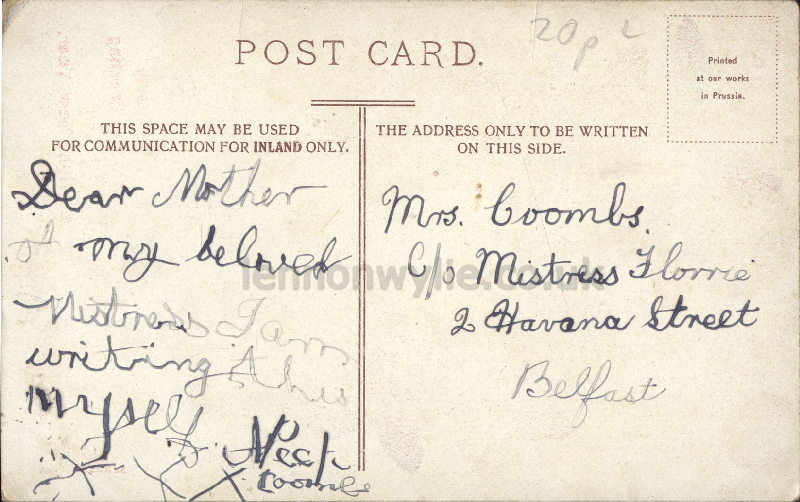 20p
POST CARD.
Printed
at our works
in Prussia.
THIS SPACE MAY BE USED
FOR COMMUNICATION FOR INLAND ONLY.
Dear Mother
of my beloved
Mistress I am
writing this
myself
Coombs
THE ADDRESS ONLY TO BE WRITTEN
ON THIS SIDE.
Mrs. Coombs.
C/o Mistress Florrie
2 Havana Street
Belfast
lennonwylie.co.uk